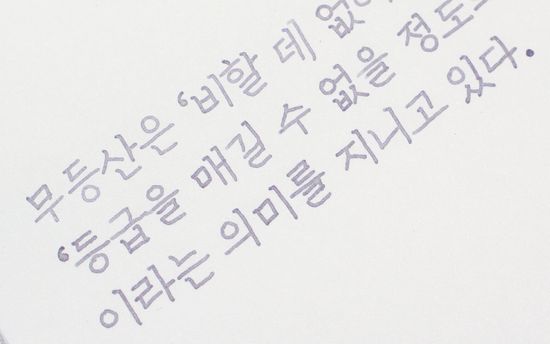 무등산은 '비할 데 없
'등급을 매길 수 없을 정도
이라는 의미를 지니고 있다.